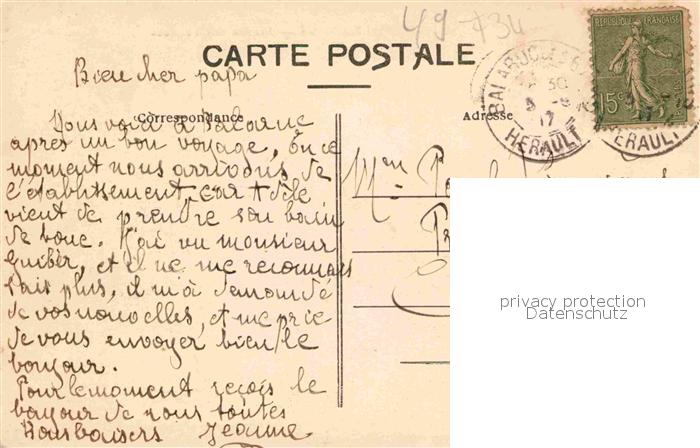 49-734
CARTE POSTALE
REPUBLIQUE FRANÇAISE
15c
BALARUC LES
30
5-9
17
HERAULT
ERAULT
Bien cher papa
Correspondance
Adresse
Nous voici à Balaruc
après un bon voyage, En ce
moment nous arrivons de
l'établissement car Adèle
vient de prendre son bain
de boue. J'ai vu monsieur
Guiber, et il ne me reconnais
sais plus, il m'a demandé
de vos nouvelles, et me prie
de vous envoyer bien le
bonjour.
Pour le moment reçois le
bonjour de nous toutes
Bons baisers Jeanne
privacy protection
Datenschutz